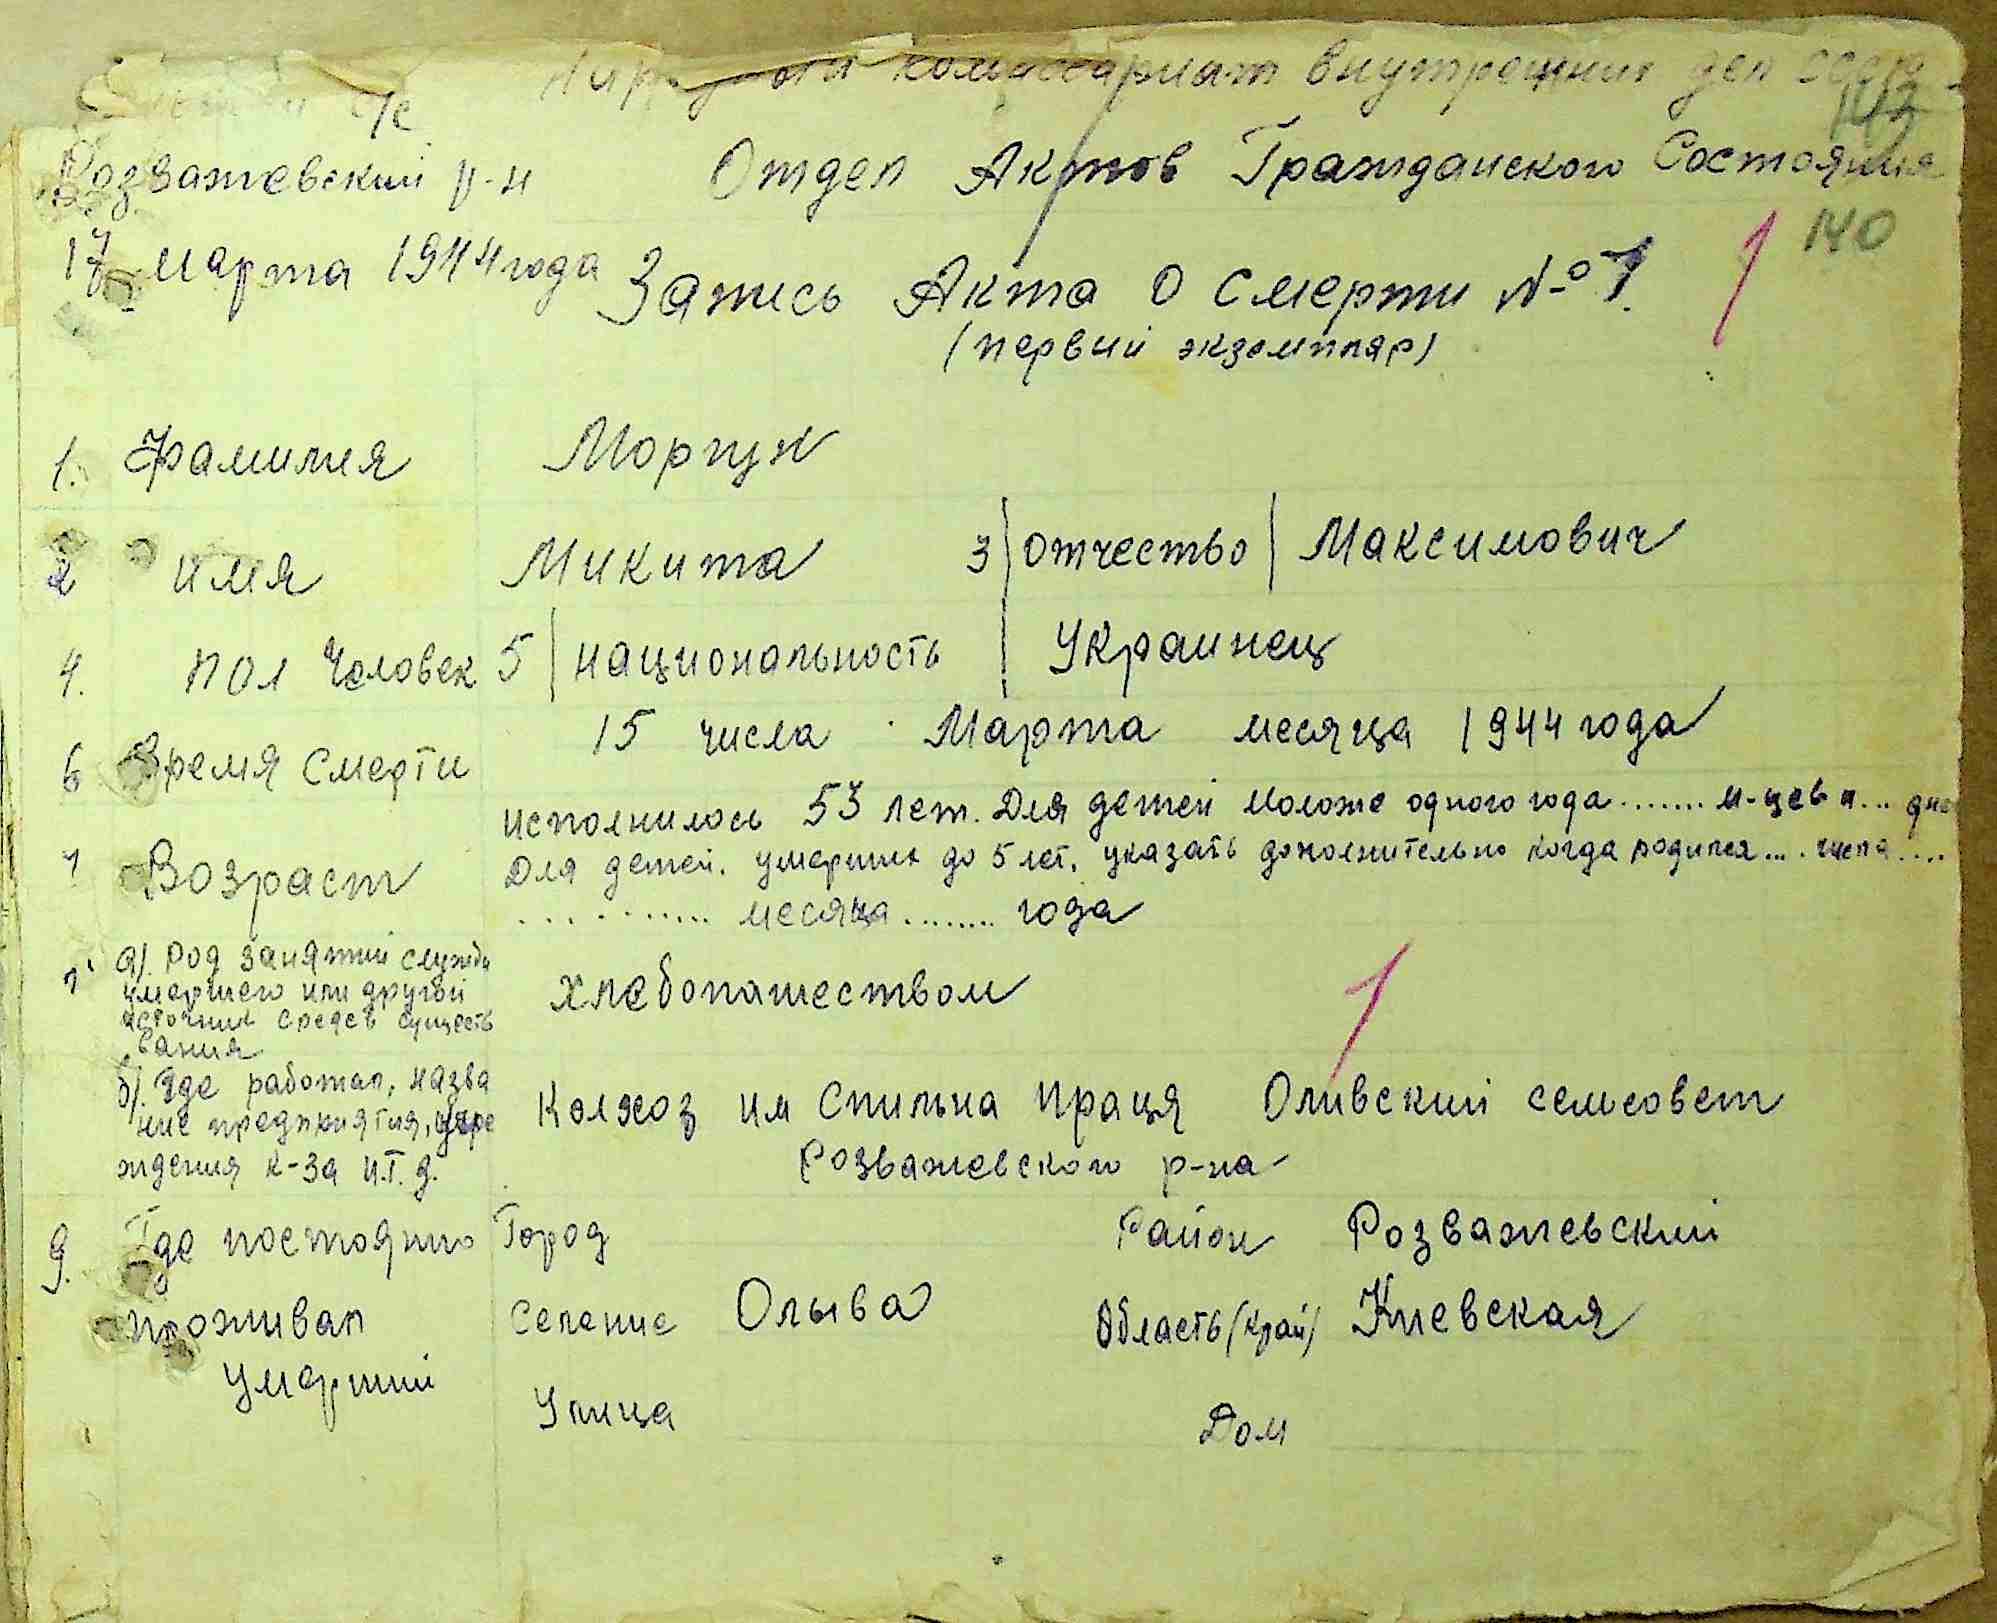 комиссариат внутрених дел
с/с
142
Розважевский р-н Отдел Актов Гражданского Состояния
140
17 марта 1944 года Запись Акта о смерти № 1.
(первий экземпляр)
1. Фамилия Моргун
2 имя Микита 3 отчество Максимович
4. пол Человек 5 национальность Украинец
6 Время Смерти 15 числа Марта месяца 1944 года
исполнилось 53 лет. Для детей моложе одного года ....... м-цев и ... дне
7 Возраст Для детей, умерших до 5 лет, указать дополнительно когда родился .... числа ....
........... месяца ........ года
а). Род занятий службы
умершего или другой хлебопашеством
источник средсв сущесть
вания
б). Где работал, назва
ние предприятия, учре Колхоз им Спильна Праця Оливский сельсовет
ждения к-за и.т.д. Розважевского р-на
9. Где постоянно Город Район Розважевский
проживал Селение Олыва Область (край) Киевская
умерший Улица Дом